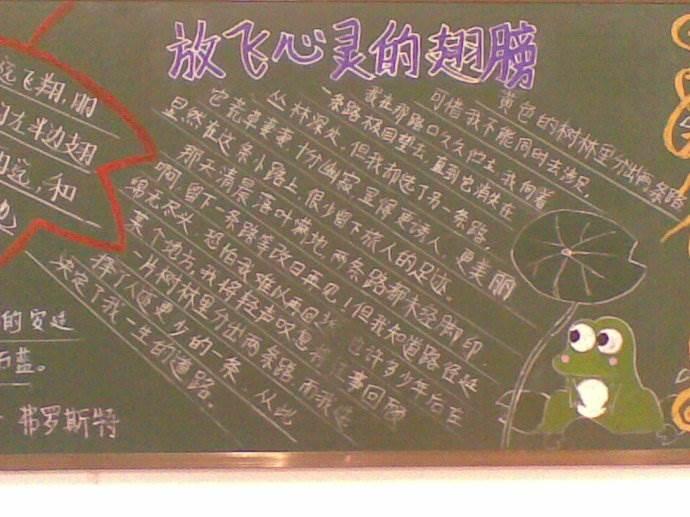 放飞心灵的翅膀
飞翔,册
左半边翅
远,和
的安定
黄色的树林里分出两条路
可惜我不能同时去涉足
我在那路口久久伫立,我向着
一条路极目望去,直到它消失在
丛林深处,但我却选了另一条路,
它荒草萋萋,十分幽寂,显得更诱人,更美丽
显然在这条小路上,很少留下旅人的足迹。
那天清晨落叶满地,两条路都未经脚印
啊,留下一条路等改日再见!但我知道路径延
绵无尽头,恐怕我难以再回返,也许多少年后在
某个地方,我将轻声叹息
一片树林里分出两条路,而我
择了人迹更少的一条,从此
决定了我一生的道路。
弗罗斯特